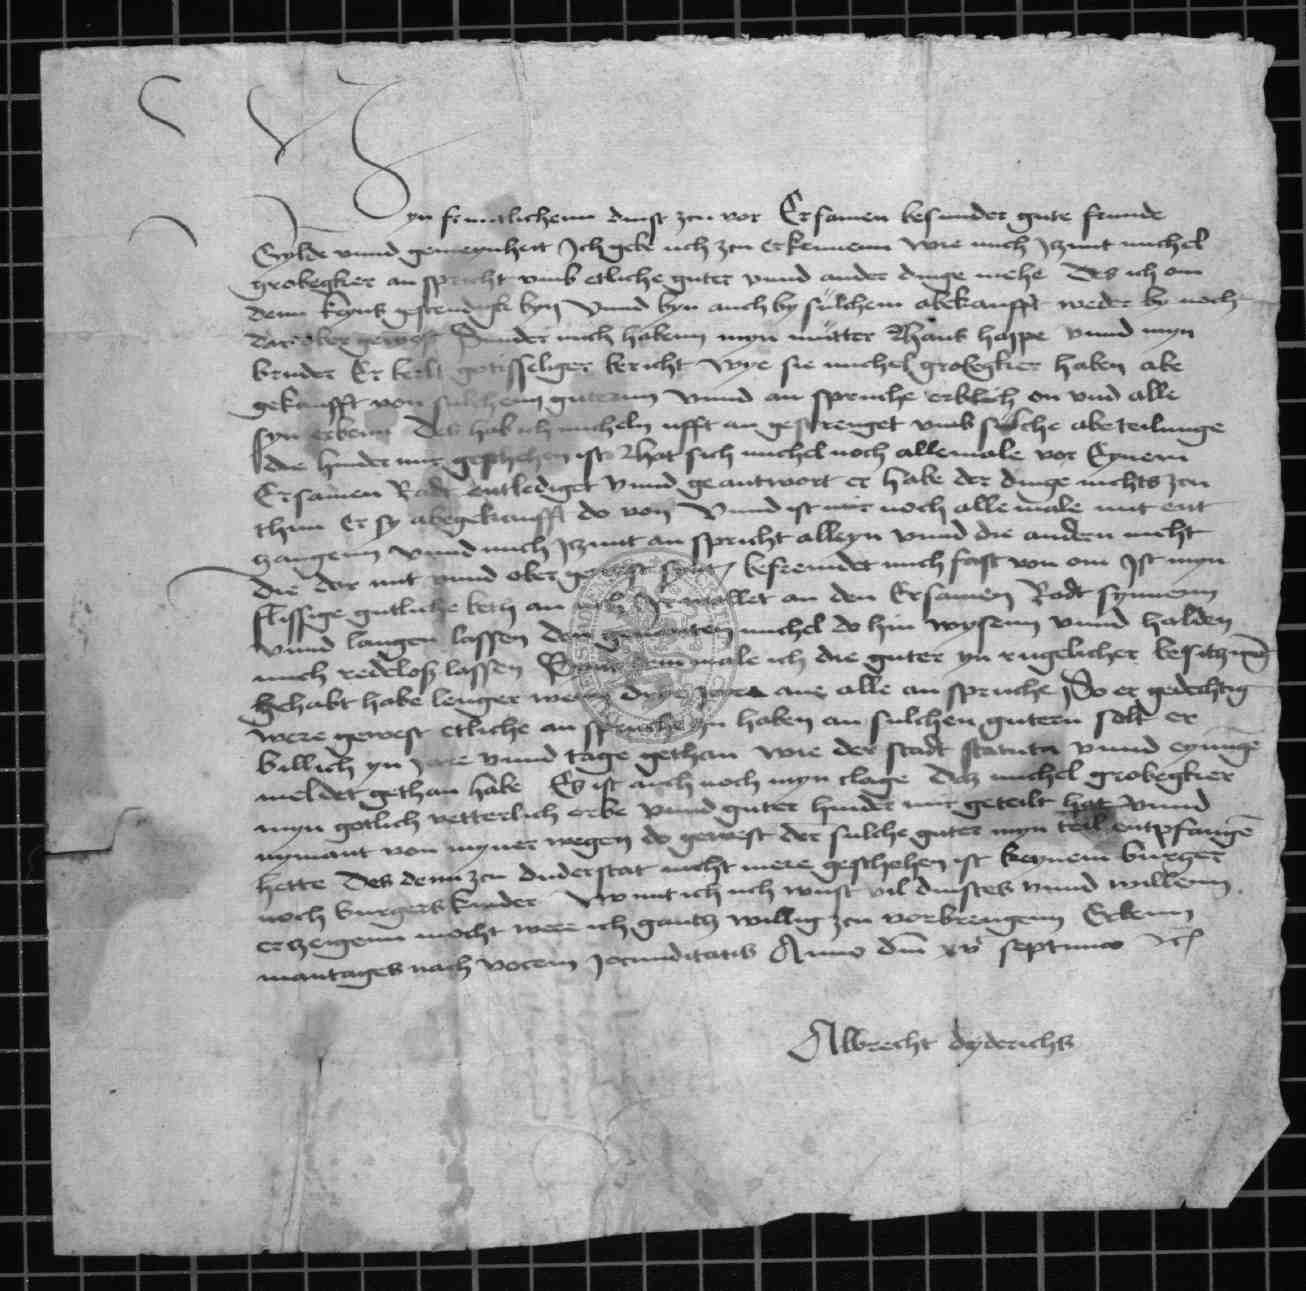 Myn fruntlichenn dinst zcu vor Ersamen besunder gute frunde
Gylde unnd gemeynheit Ich gebe uch zcu erkennenn wie mich Itzunt michel
grobegker an spricht umb etliche guter unnd ander dinge mehe des ich om
denn keyns gestendigk byn Unnd byn auch by sulchem abekaufft weder by noch
dar ober gewest Sunder mich habenn myn mutter Hans hoppe unnd myn
bruder Er bertlt gotisseliger bericht Wye sie michel grobegker haben abe
gekaufft von sulchenn guternn Unnd an spruche erblich on und alle
syn erbenn Des hab ich micheln offt an gestrenget umb sulche abe teilunge
die hinder mir geschehen ist Hat sich michel noch allemale vor Eynem
Ersamen Radt entlediget Unnd geantwort er habe der dinge nichts zcu
thun Er sy abegekaufft do von Unnd ist mir noch alle male mit ent
gangenn Unnd mich Itzunt an spricht alleyn unnd die andern nicht
die dar mit unnd ober gewest synt befremdet mich fast von om Ist myn
flissige gutliche beth an uch Ir wollet an den Ersamen Radt synnenn
unnd langen lassen den genanten michel do hin wysenn unnd halden
mich redeloß lassen Nach dem male ich die guter yn rugelicher besitzung
gehabt habe lenger wenn drye Jare ane alle an spruche So er gedechtig
were gewest etliche an spruche zu haben an sulchen gutern solt er
billich yn Jare unnd tage gethan wie der stadt statuta unnd eynunge
meldet gethan habe Es ist auch noch myn clage das michel grobegker
myn gotlich vetterlich erbe unnd guter hinder mir geteilt hat unnd
nymant von myner wegen do gewest der sulche guter myn teil entpfange
hette Des denn zcu duderstat nicht mere geschehen ist keynem burger
noch burgers kinder Wo mit ich uch wust vil dinstes unnd willenn
erzceigenn mocht were ich gantz willig zcu vorbrengenn Gebenn
mantages nach vocem Jocunditatis Anno dm xv septimo etc
Albrecht dyderichs